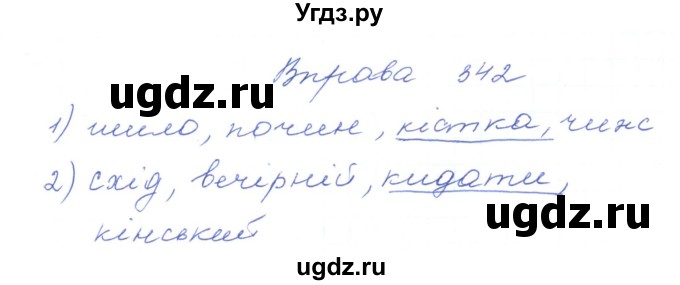 Угдз.ру
Вправа 342
ugdz.ru
1) шило, почин, кістка, чинс
2) схід, вечірній, кидати,
ugdz.ru
кінський
ugdz.ru